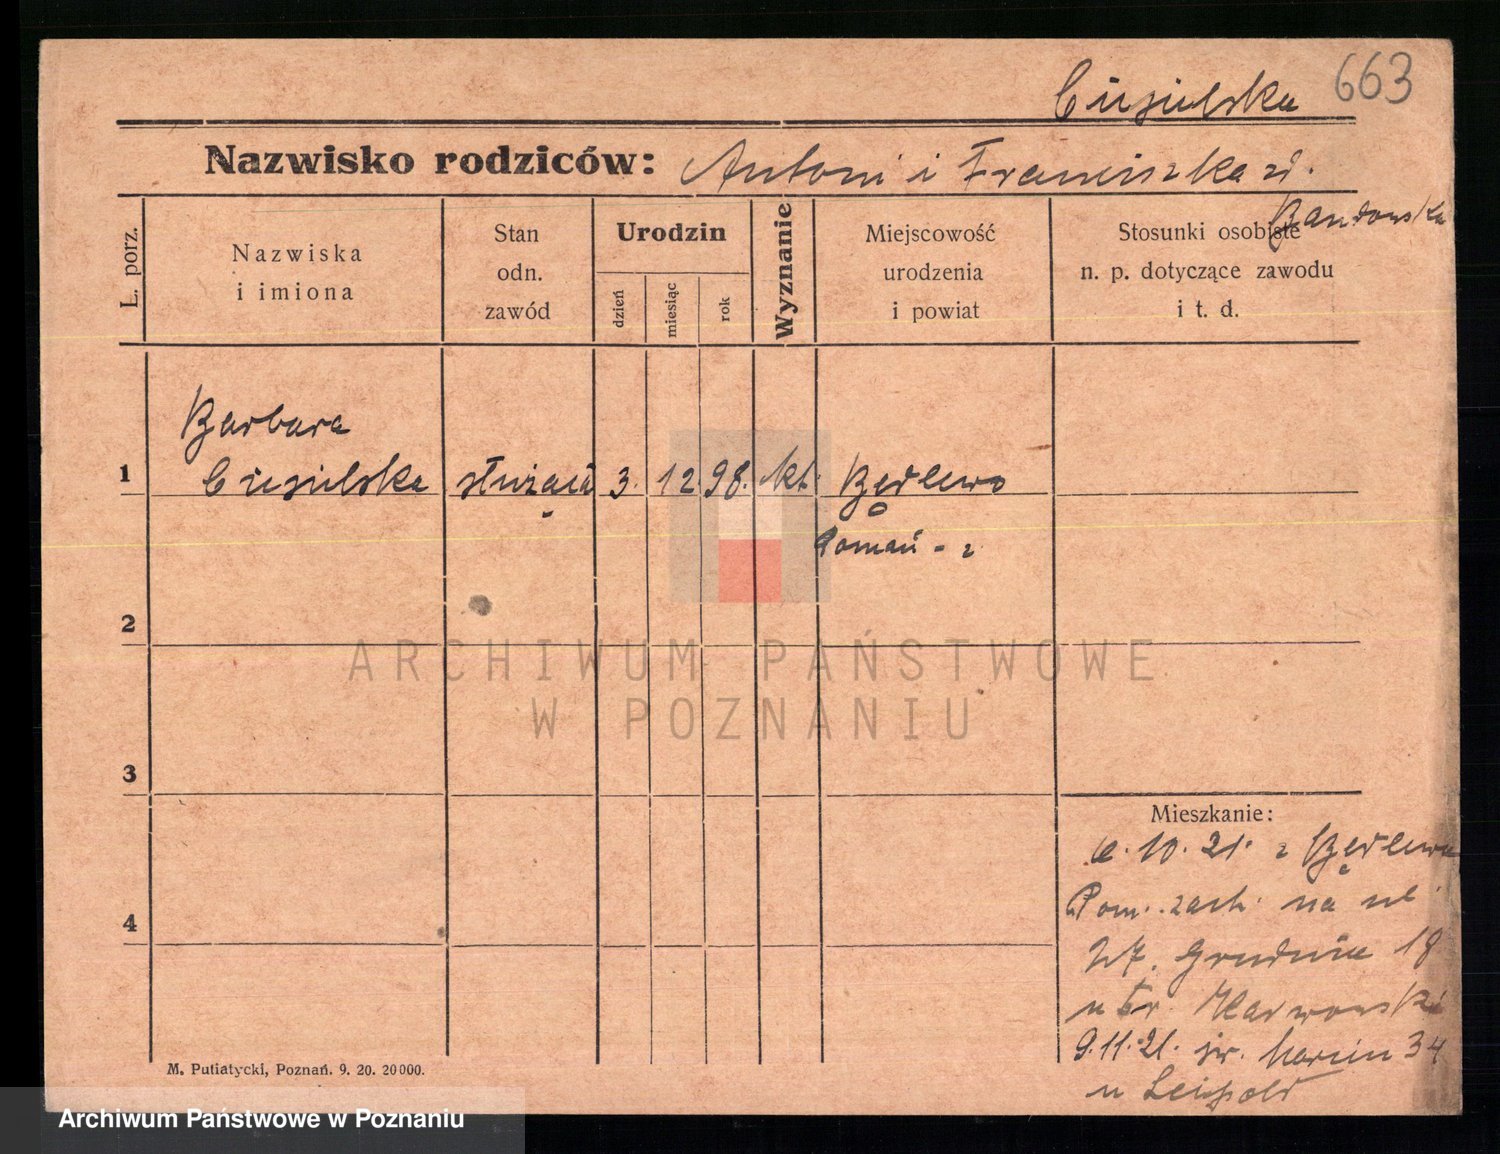 663
Nazwisko rodziców: Antoni i Franciszka zd.
Bandowska
L. porz.
Nazwiska
i imiona
Stan
odn.
zawód
Urodzin
dzień
miesiąc
rok
Wyznanie
Miejscowość
urodzenia
i powiat
Stosunki osobiste
n. p. dotyczące zawodu
i t. d.
Barbara
1 służąca 3. 12 98. kt. Będlewo
2
3
4
Mieszkanie:
10. 21. z Będlewa
Pozn. zach. na ul.
27. Grudnia 18
u
9.11.21. św. Marcin 34
u Leipold
M. Putiatycki, Poznań. 9. 20. 20000.
ARCHIWUM PAŃSTWOWE
W POZNANIU
Archiwum Państwowe w Poznaniu